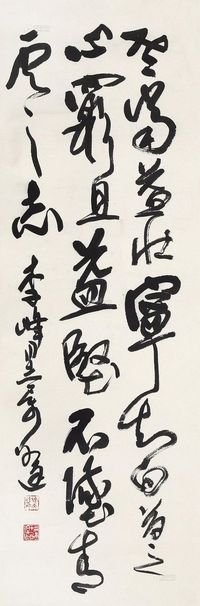 老當益壯寧知白首之
心窮且益堅不墜青
雲之志 李峰